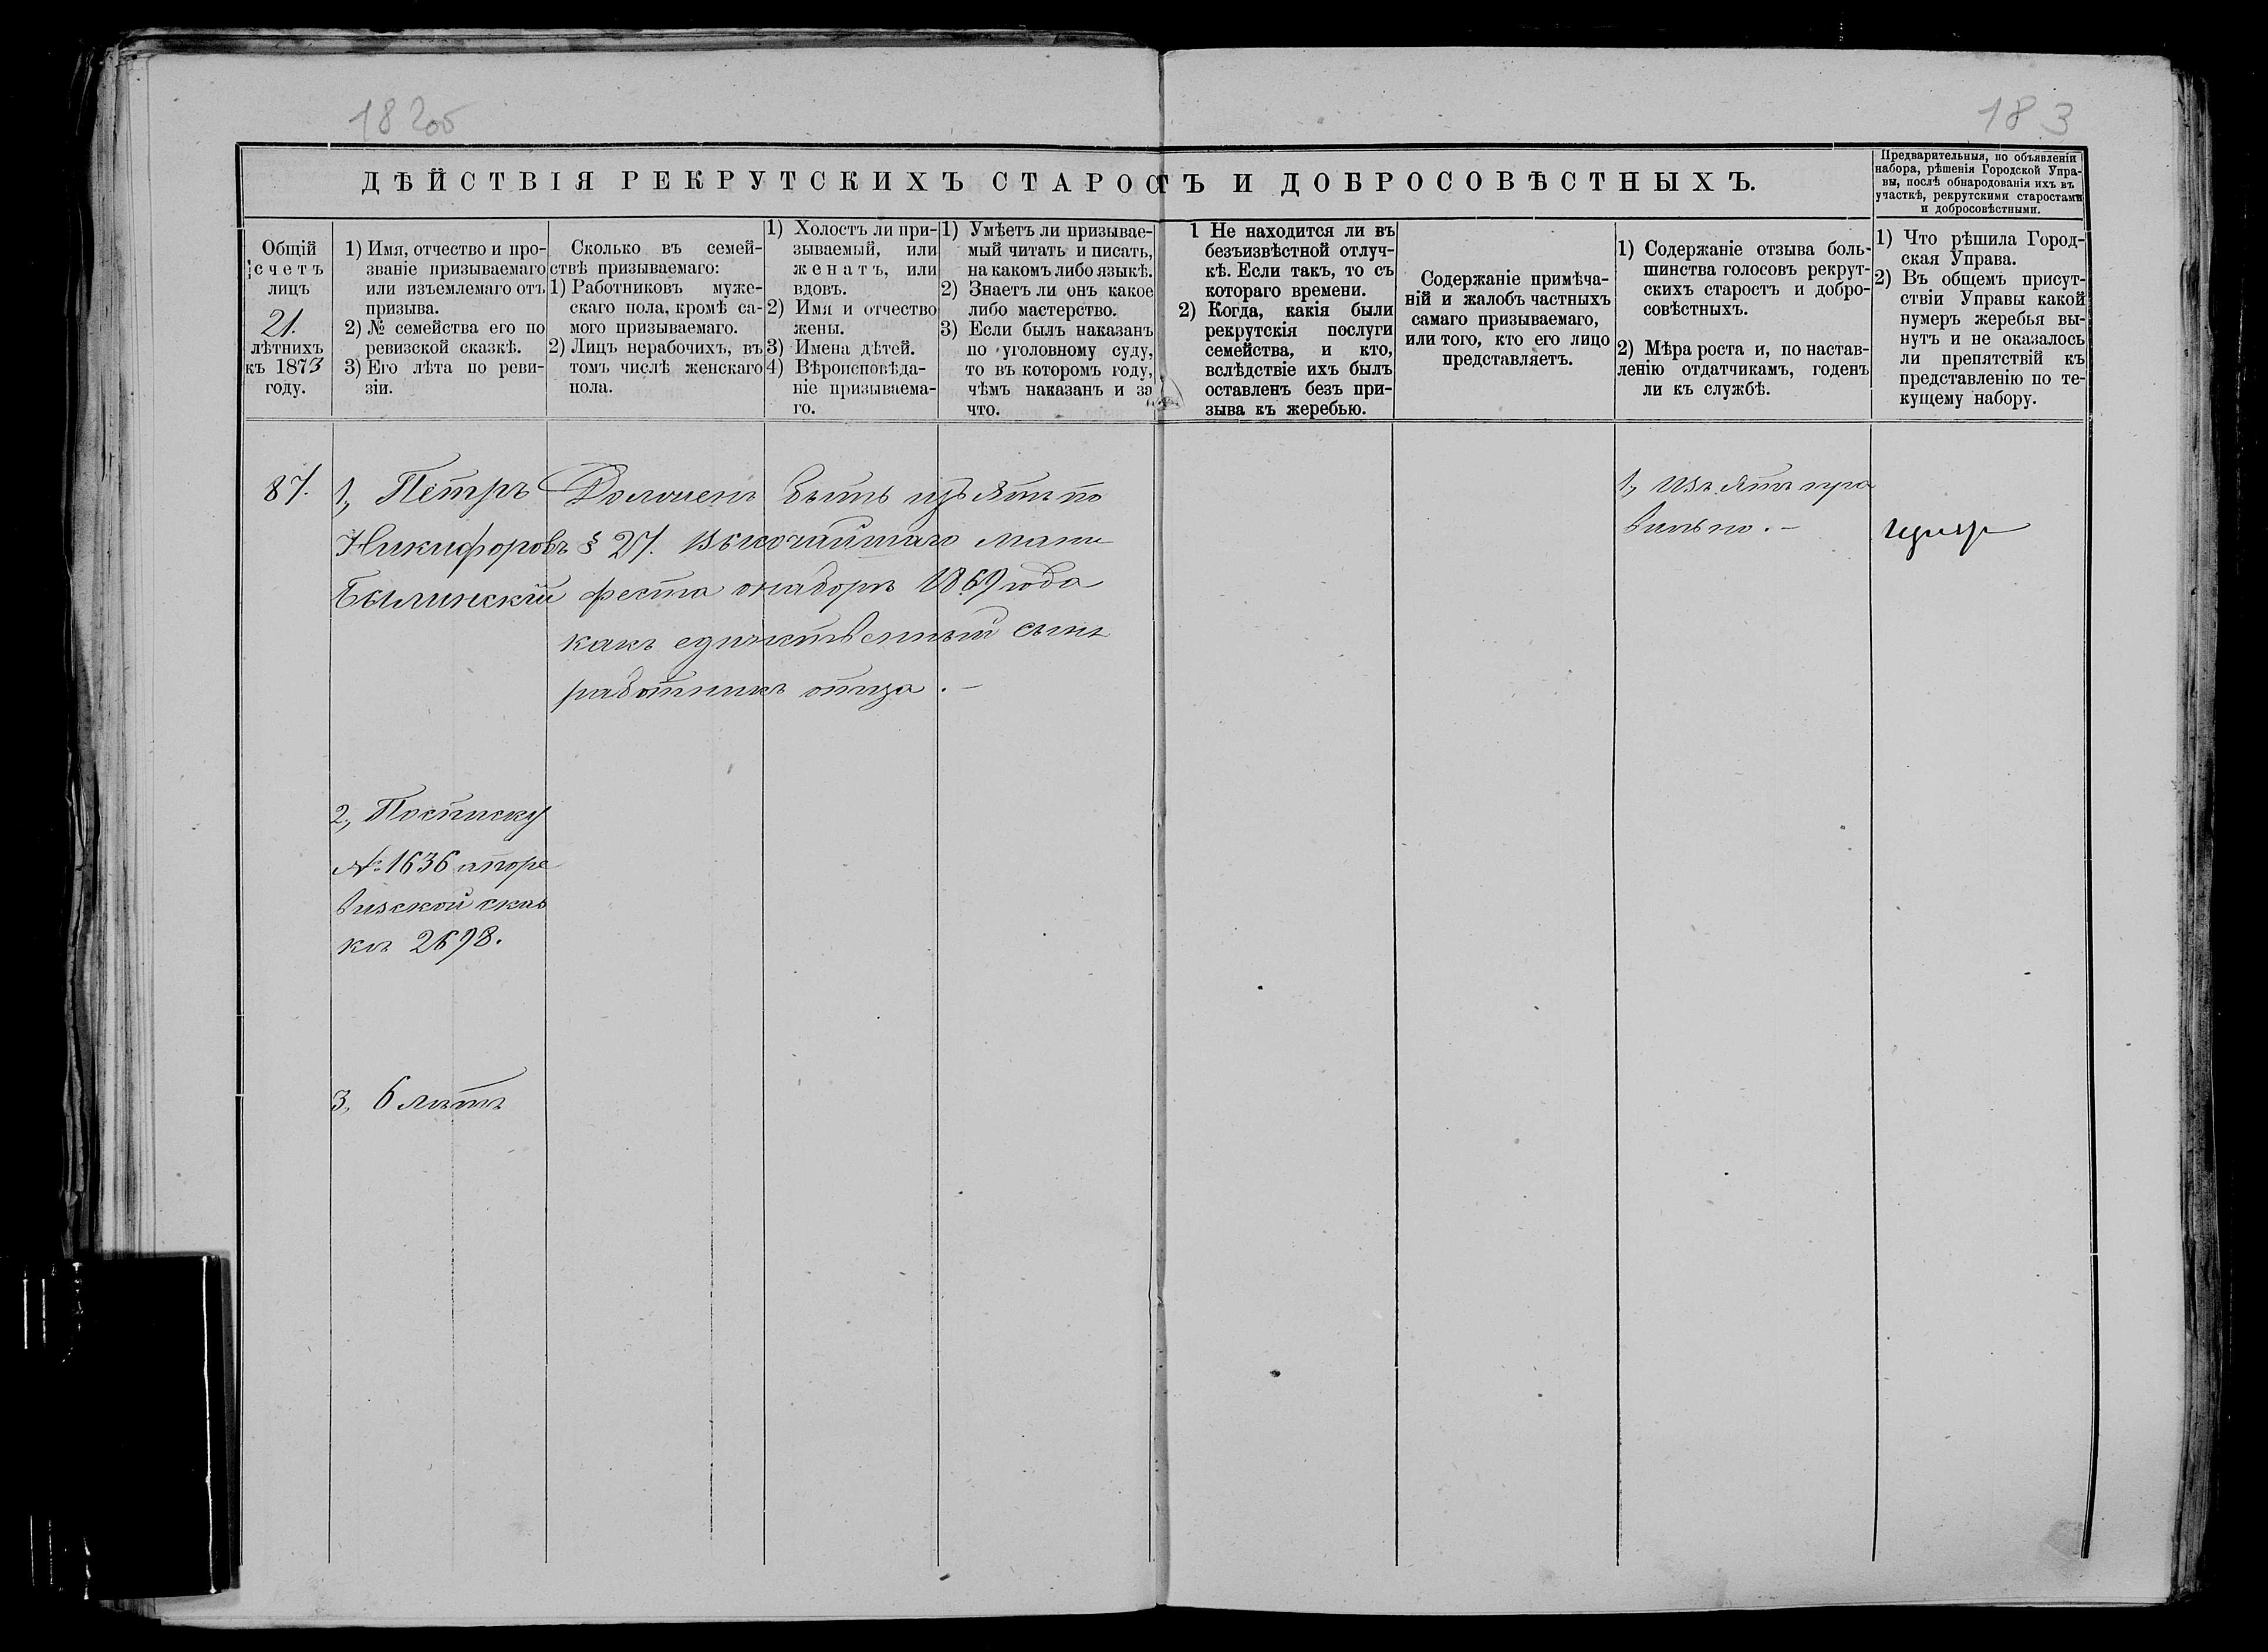 182об
183
ДѢЙСТВІЯ РЕКРУТСКИХЪ СТАРОСТЪ И ДОБРОСОВѢСТНЫХЪ.
Предварительныя, по объявленіи
набора, рѣшенія Городской Упра-
вы, послѣ обнародованія ихъ въ
участкѣ, рекрутскими старостами
и добросовѣстными.
Общій
счетъ
лицъ
21.
лѣтнихъ
къ 1873
году.
1) Имя, отчество и про-
званіе призываемаго
или изъемлемаго отъ
призыва.
2) № семейства его по
ревизской сказкѣ.
3) Его лѣта по реви-
зіи.
Сколько въ семей-
ствѣ призываемаго:
1) Работниковъ муже-
скаго пола, кромѣ са-
мого призываемаго.
2) Лицъ нерабочихъ, въ
томъ числѣ женскаго
пола.
1) Холостъ ли при-
зываемый, или
женатъ, или
вдовъ.
2) Имя и отчество
жены.
3) Имена дѣтей.
4) Вѣроисповѣда-
ніе призываема-
го.
1) Умѣетъ ли призывае-
мый читать и писать,
на какомъ либо языкѣ.
2) Знаетъ ли онъ какое
либо мастерство.
3) Если былъ наказанъ
по уголовному суду,
то въ которомъ году,
чѣмъ наказанъ и за
что.
1 Не находится ли въ
безъизвѣстной отлуч-
кѣ. Если такъ, то съ
котораго времени.
2) Когда, какія были
рекрутскія послуги
семейства, и кто,
вслѣдствіе ихъ былъ
оставленъ безъ при-
зыва къ жеребью.
Содержаніе примѣча-
ній и жалобъ частныхъ
самаго призываемаго,
или того, кто его лицо
представляетъ.
1) Содержаніе отзыва боль-
шинства голосовъ рекрут-
скихъ старостъ и добро-
совѣстныхъ.
2) Мѣра роста и, по настав-
ленію отдатчикамъ, годенъ
ли къ службѣ.
1) Что рѣшила Город-
ская Управа.
2) Въ общемъ присут-
ствіи Управы какой
нумеръ жеребья вы-
нутъ и не оказалось
ли препятствій къ
представленію по те-
кущему набору.
87.
1, Петръ
Никифоровъ
Былинскій
Должен быть изъятъ по
§ 27. Высочайшаго мани
феста о наборѣ 1869 года
какъ единственный сынъ
работникъ отца. —
1, Изъятъ пра
вильно. —
2, По списку
№ 1636 а по ре
визской сказ
кѣ 2698.
3, 6 лѣтъ